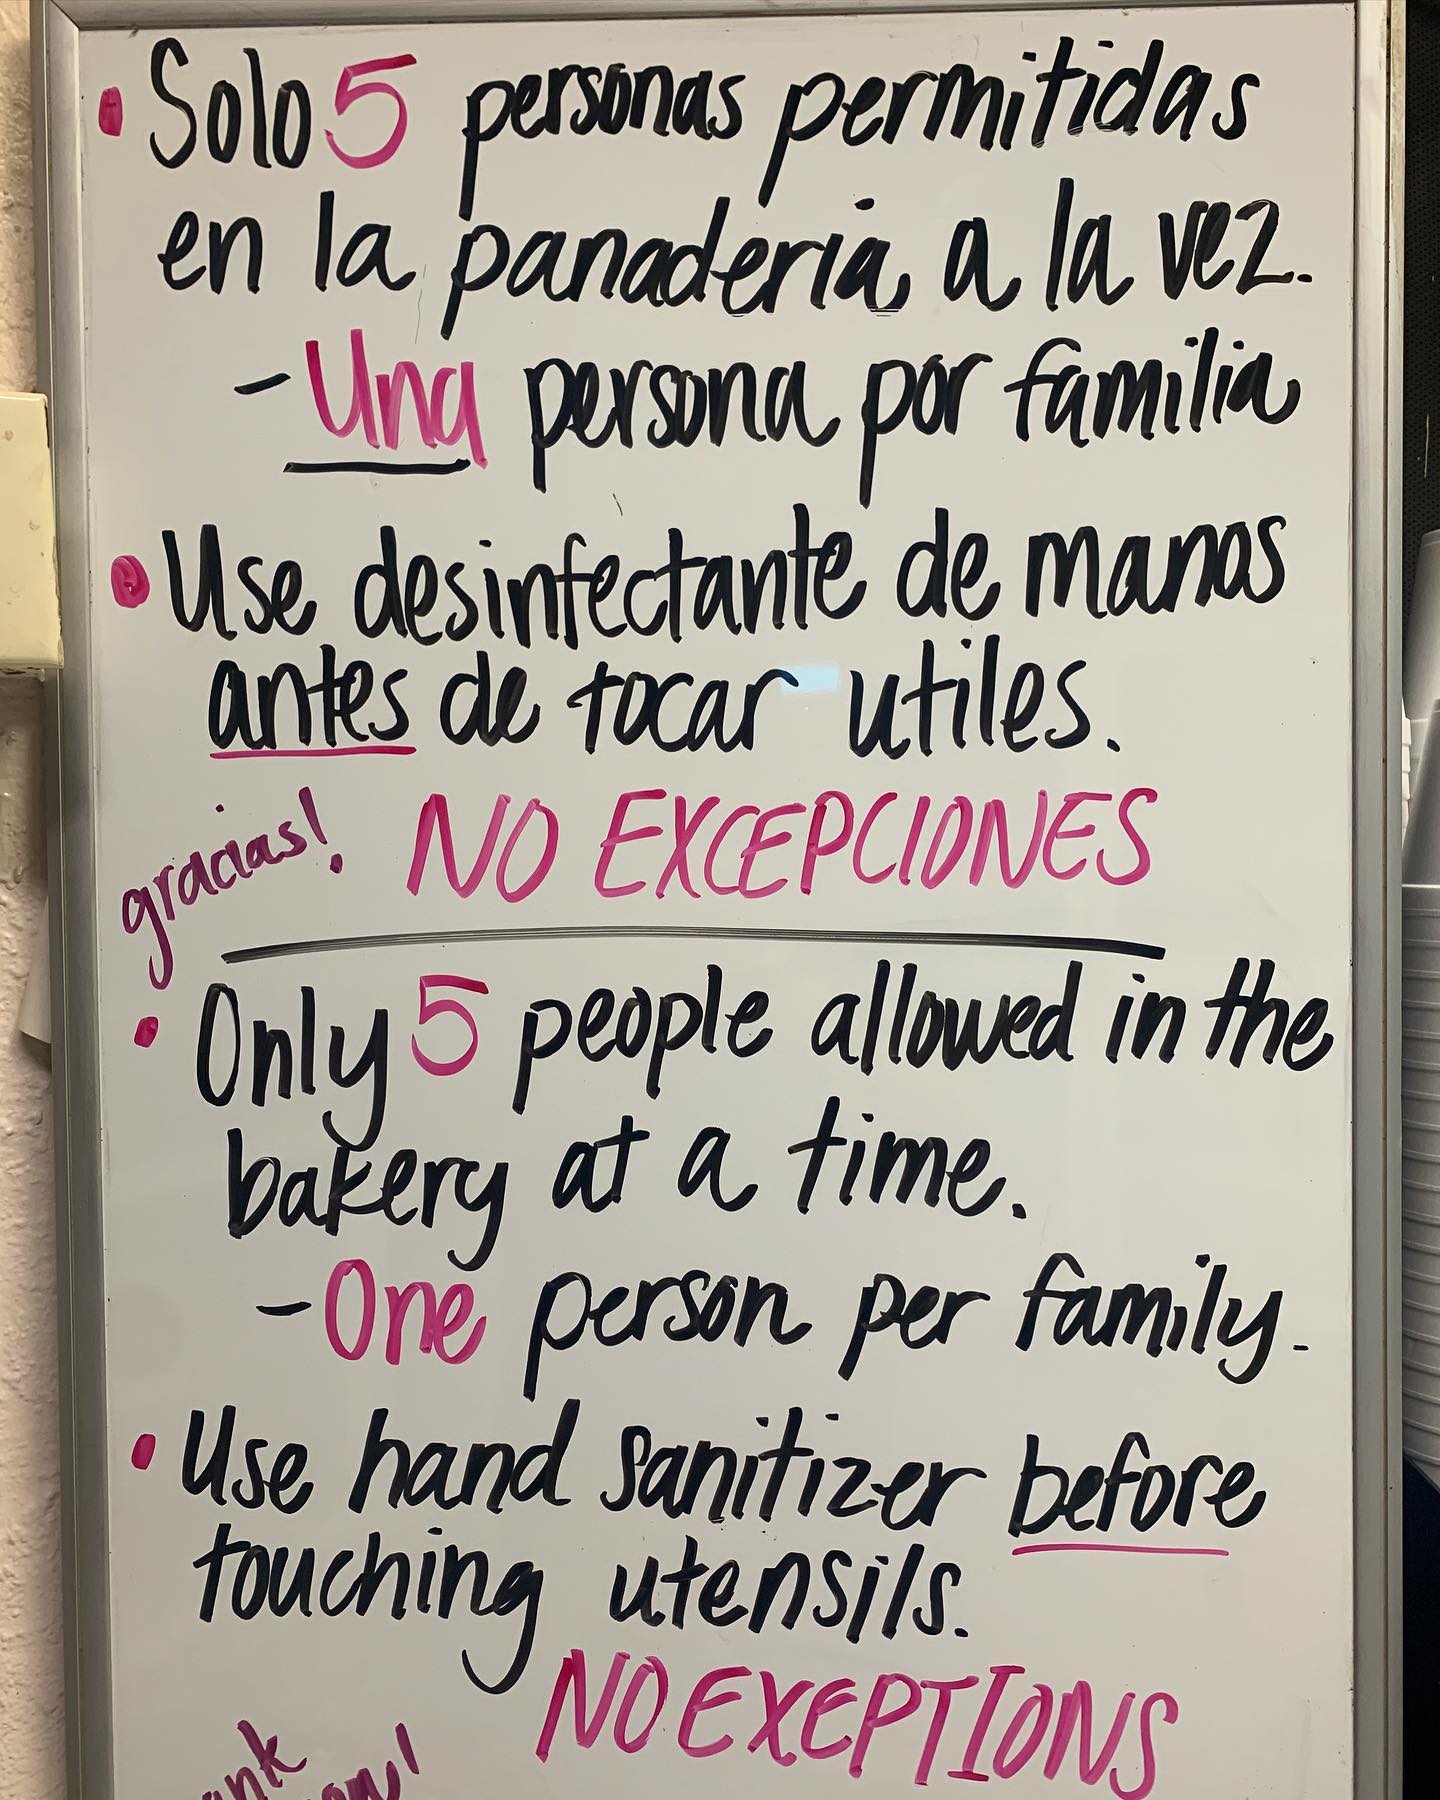 • Solo 5 personas permitidas
en la panaderia a la vez.
- Una persona por familia
• Use desinfectante de manos
antes de tocar utiles.
gracias! NO EXCEPCIONES
• Only 5 people allowed in the
bakery at a time.
- One person per family.
• Use hand sanitizer before
touching utensils.
NO EXEPTIONS